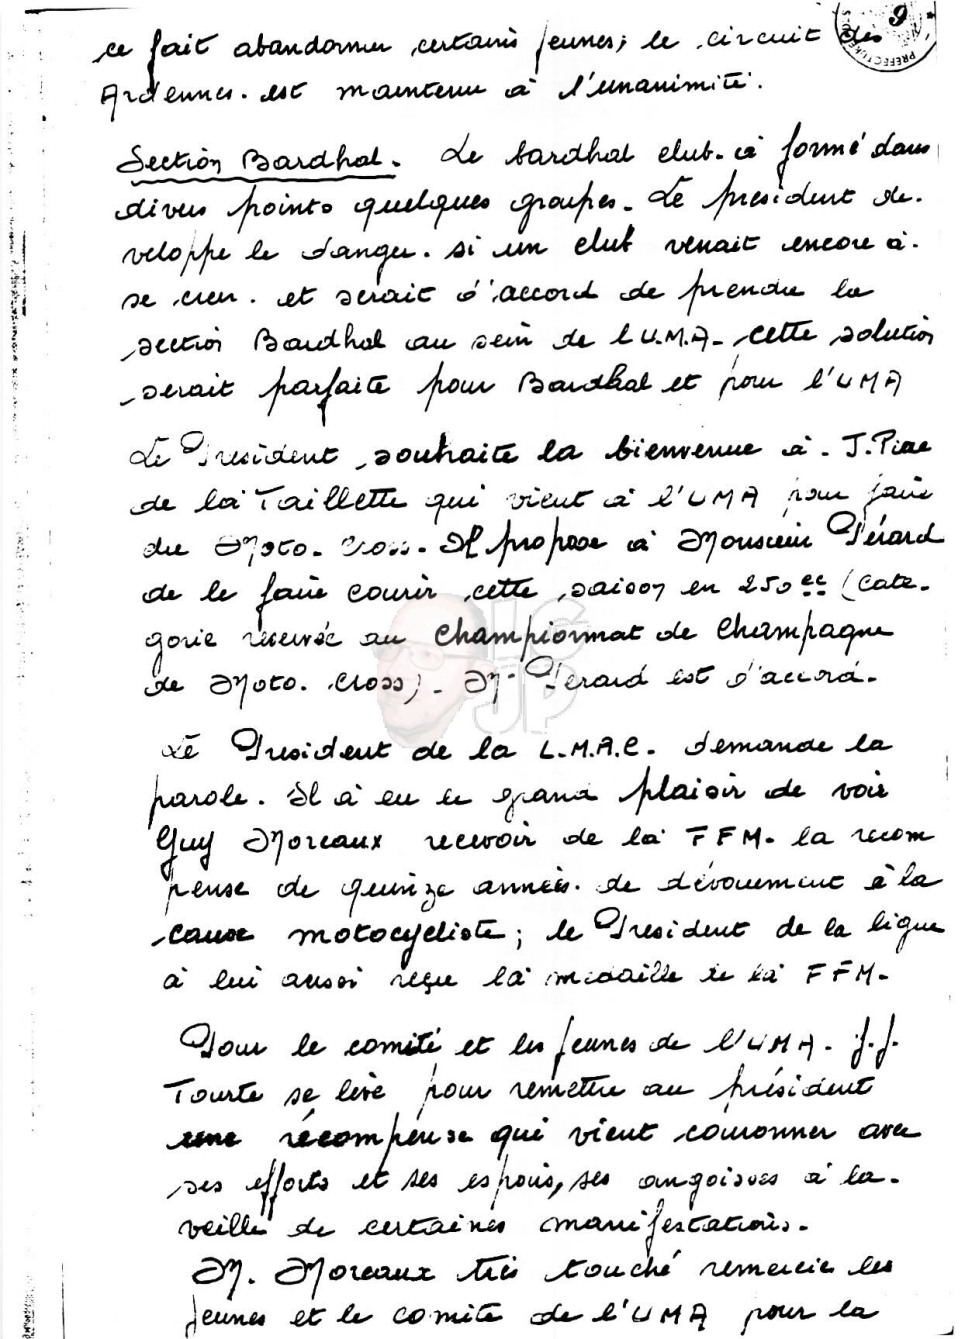 9
PREFECTURE DES
ce fait abandonner certains jeunes; le circuit des
Ardennes. est maintenu à l'unanimité.
Section Bardhal. Le bardhal club. à formé dans
divers points quelques groupes. Le président dé.
veloppe le danger. si un club venait encore à.
se créer. et serait d'accord de prendre la
section Bardhal au sein de l'U.M.A. cette solution
serait parfaite pour Bardhal et pour l'UMA
Le President souhaite la bienvenue à. J.
de la Taillette qui vient à l'UMA pour faire
du Moto. Cross. Il propose à Monsieur Pérard
de le faire courir cette saison en 250 cc (cate-
gorie reservée au championnat de Champagne
de Moto. Cross). Mr Perard est d'accord.
Le President de la L.M.A.C. demande la
parole. Il à eu le grand plaisir de voir
Guy Moreaux recevoir de la FFM. la recom
pense de quinze années. de dévouement à la
cause motocycliste; le President de la ligue
à lui aussi reçu la médaille de la FFM.
Pour le comité et les jeunes de l'UMA. J.J.
Tourte se lève pour remettre au président
une récompense qui vient couronner avec
ses efforts et ses espoirs, ses angoisses à la.
veille de certaines manifestations.
M. Moreaux très touché remercie les
jeunes et le comité de l'UMA pour la
JCJP